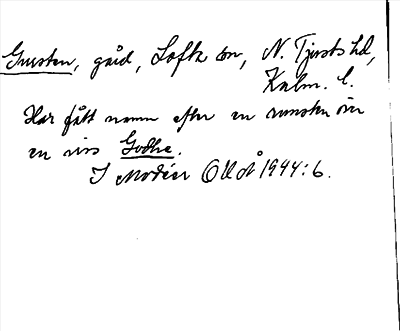 Gursten, gård, Lofta sn, N. Tjusts hd,
Kalm. l.
Har fått namn efter en runsten över
en viss Godhe.
I Modéer OUÅ 1944: 6.